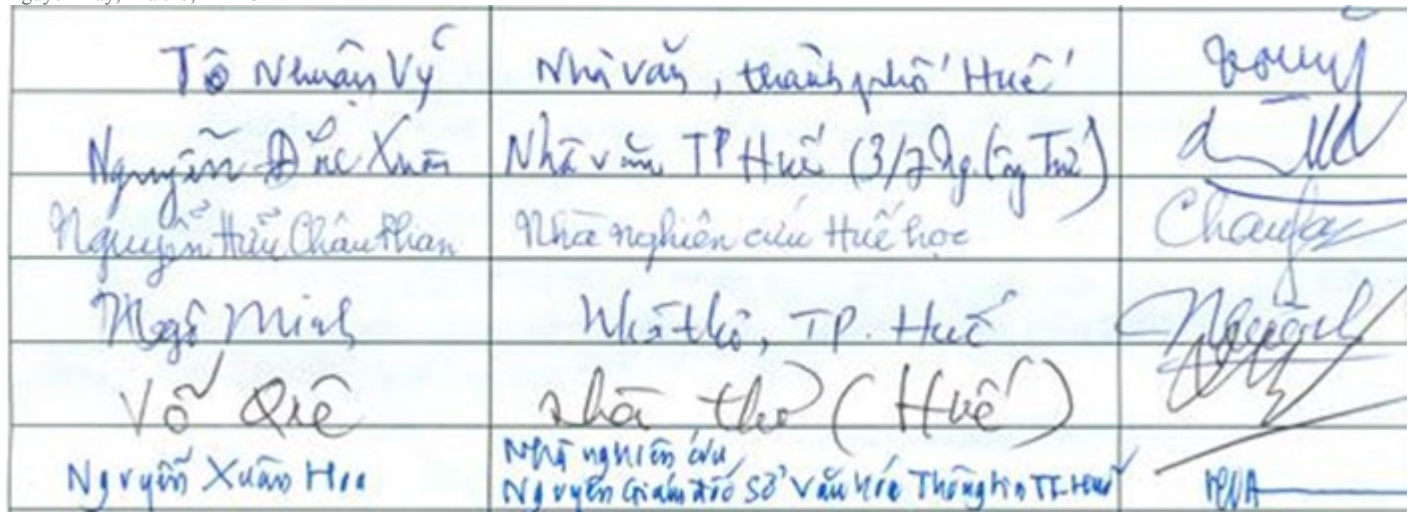 Tô Nhuận Vỹ Nhà văn, thành phố Huế
Nguyễn Đắc Xuân Nhà văn TP Huế (3/7 Ng. Công Trứ)
Nguyễn Hữu Châu Phan Nhà nghiên cứu Huế học
Ngô Minh Nhà thơ, TP. Huế
Võ Quê nhà thơ (Huế)
Nhà nghiên cứu
Nguyễn Xuân Hoa Nguyên Giám đốc Sở Văn hóa Thông tin TT-Huế